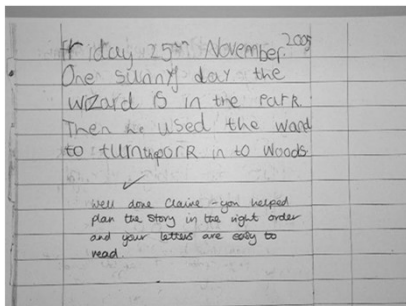 Friday 25th November 2005
One sunny day the
wizard is in the Park.
Then he used the wand
to turn the porR in to woods
well done Claire - you helped
plan the story in the right order
and your letters are easy to
read.